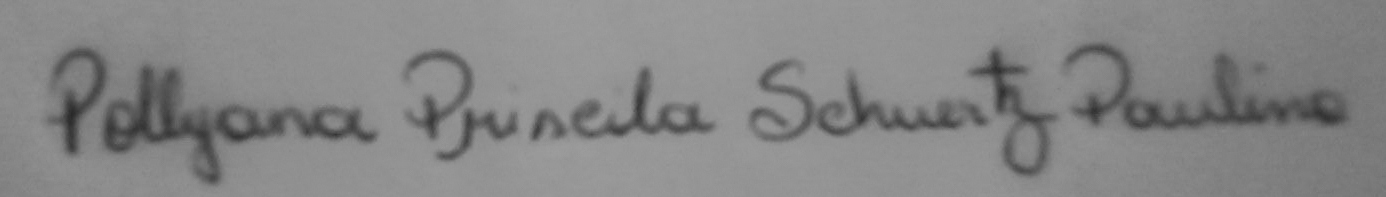 Pollyana Priscila Schuertz Paulino